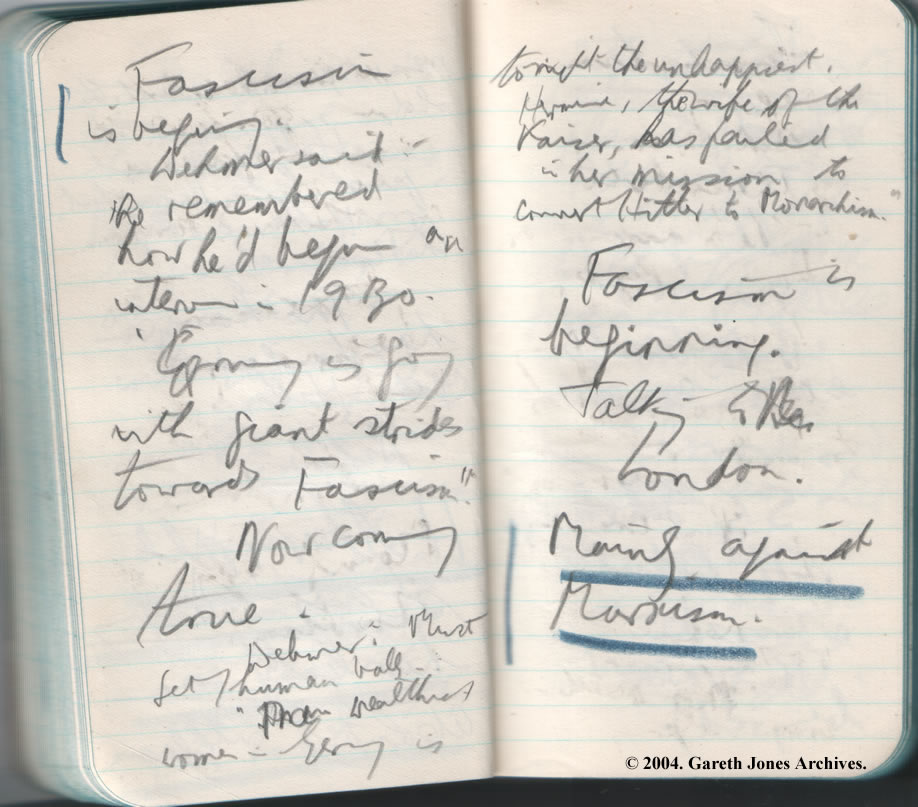 Fascism
is beging.
Dehmer said :-
remembered
how he'd begun an
interv in 1930.
"Germany is going
with giant strides
towards Fascism".
Now coming
true.
Dehmer: Must
Set / human
wealthiest
women in Germy is
tonight the unhappiest.
Hermine, the wife of the
Kaiser, has failed
in her mission to
convert Hitler to Monarchism."
Fascism is
beginning.
Talking
London.
Mainly against
Marxism.
© 2004. Gareth Jones Archives.